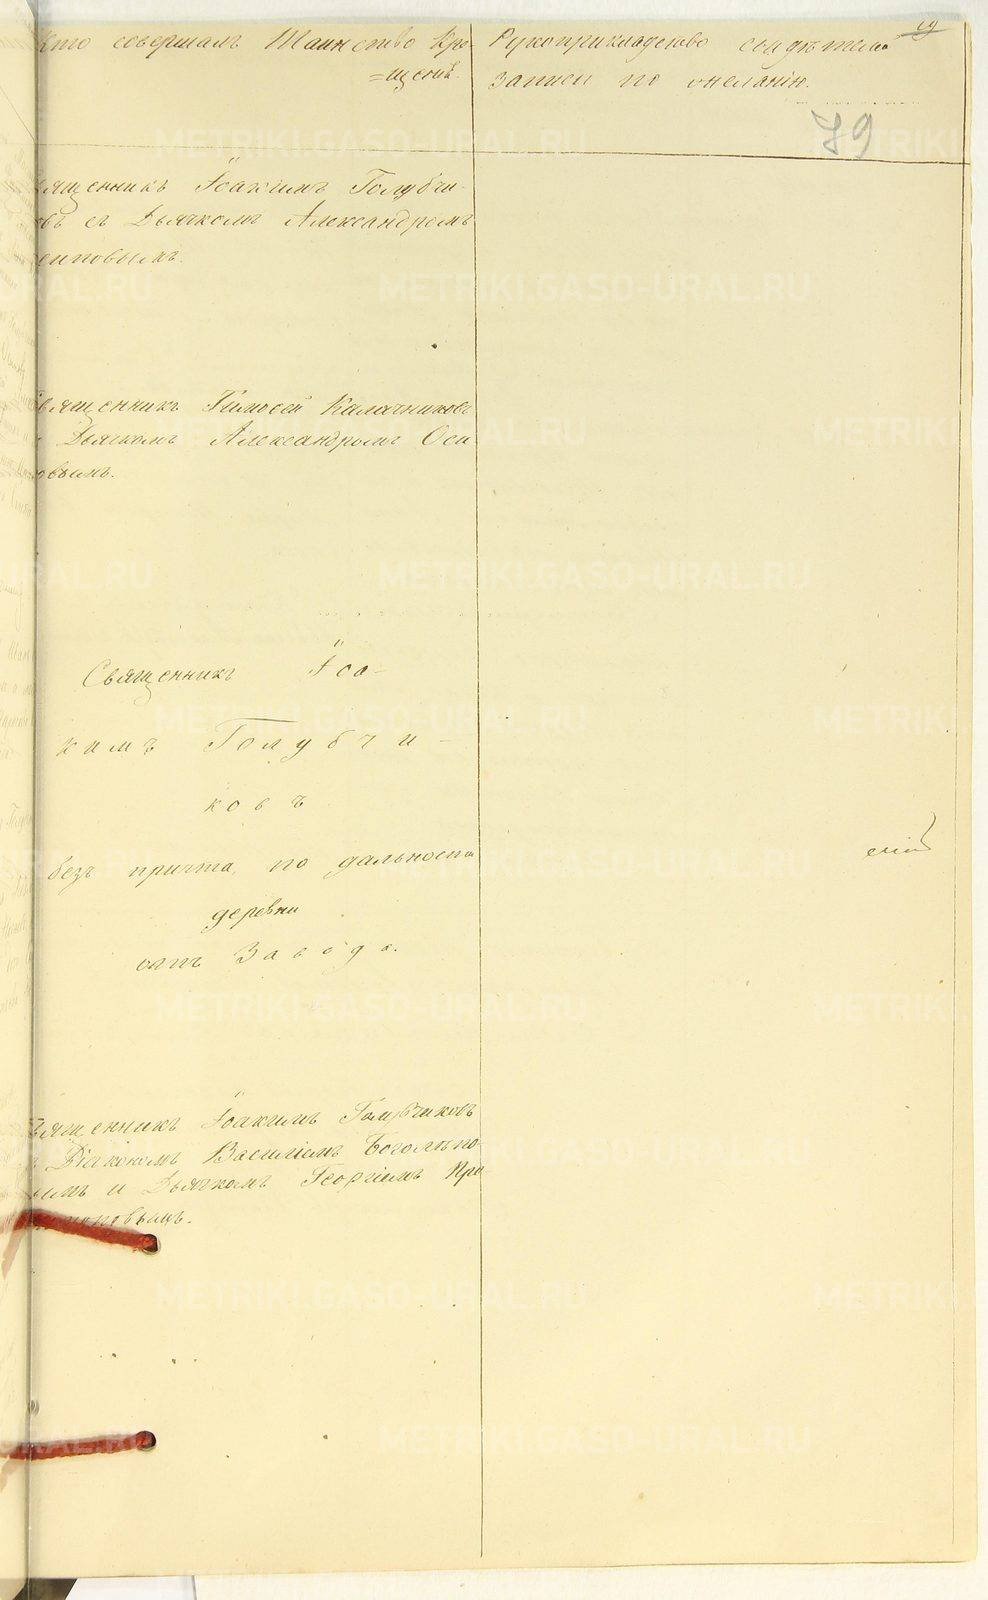 19
79
Кто совершалъ Таинство Кре-
=щенія.
Рукоприкладство свидѣтелей
записи по желанію.
вященникъ Іоакимъ Голубчи-
овъ съ Дьячкомъ Александромъ
сиповымъ.
Священникъ Тимофей Калачниковъ
Дьячкомъ Александромъ Оси
овымъ.
Священникъ Іоа-
кимъ Голубчи-
ковъ
безъ причта, по дальности
деревни
отъ Завода.
вященникъ Іоакимъ Голубчиковъ
Діакономъ Василіемъ Боголѣпо-
вымъ и Дьячкомъ Георгіемъ Про
поповымъ.
METRIKI.GASO-URAL.RU